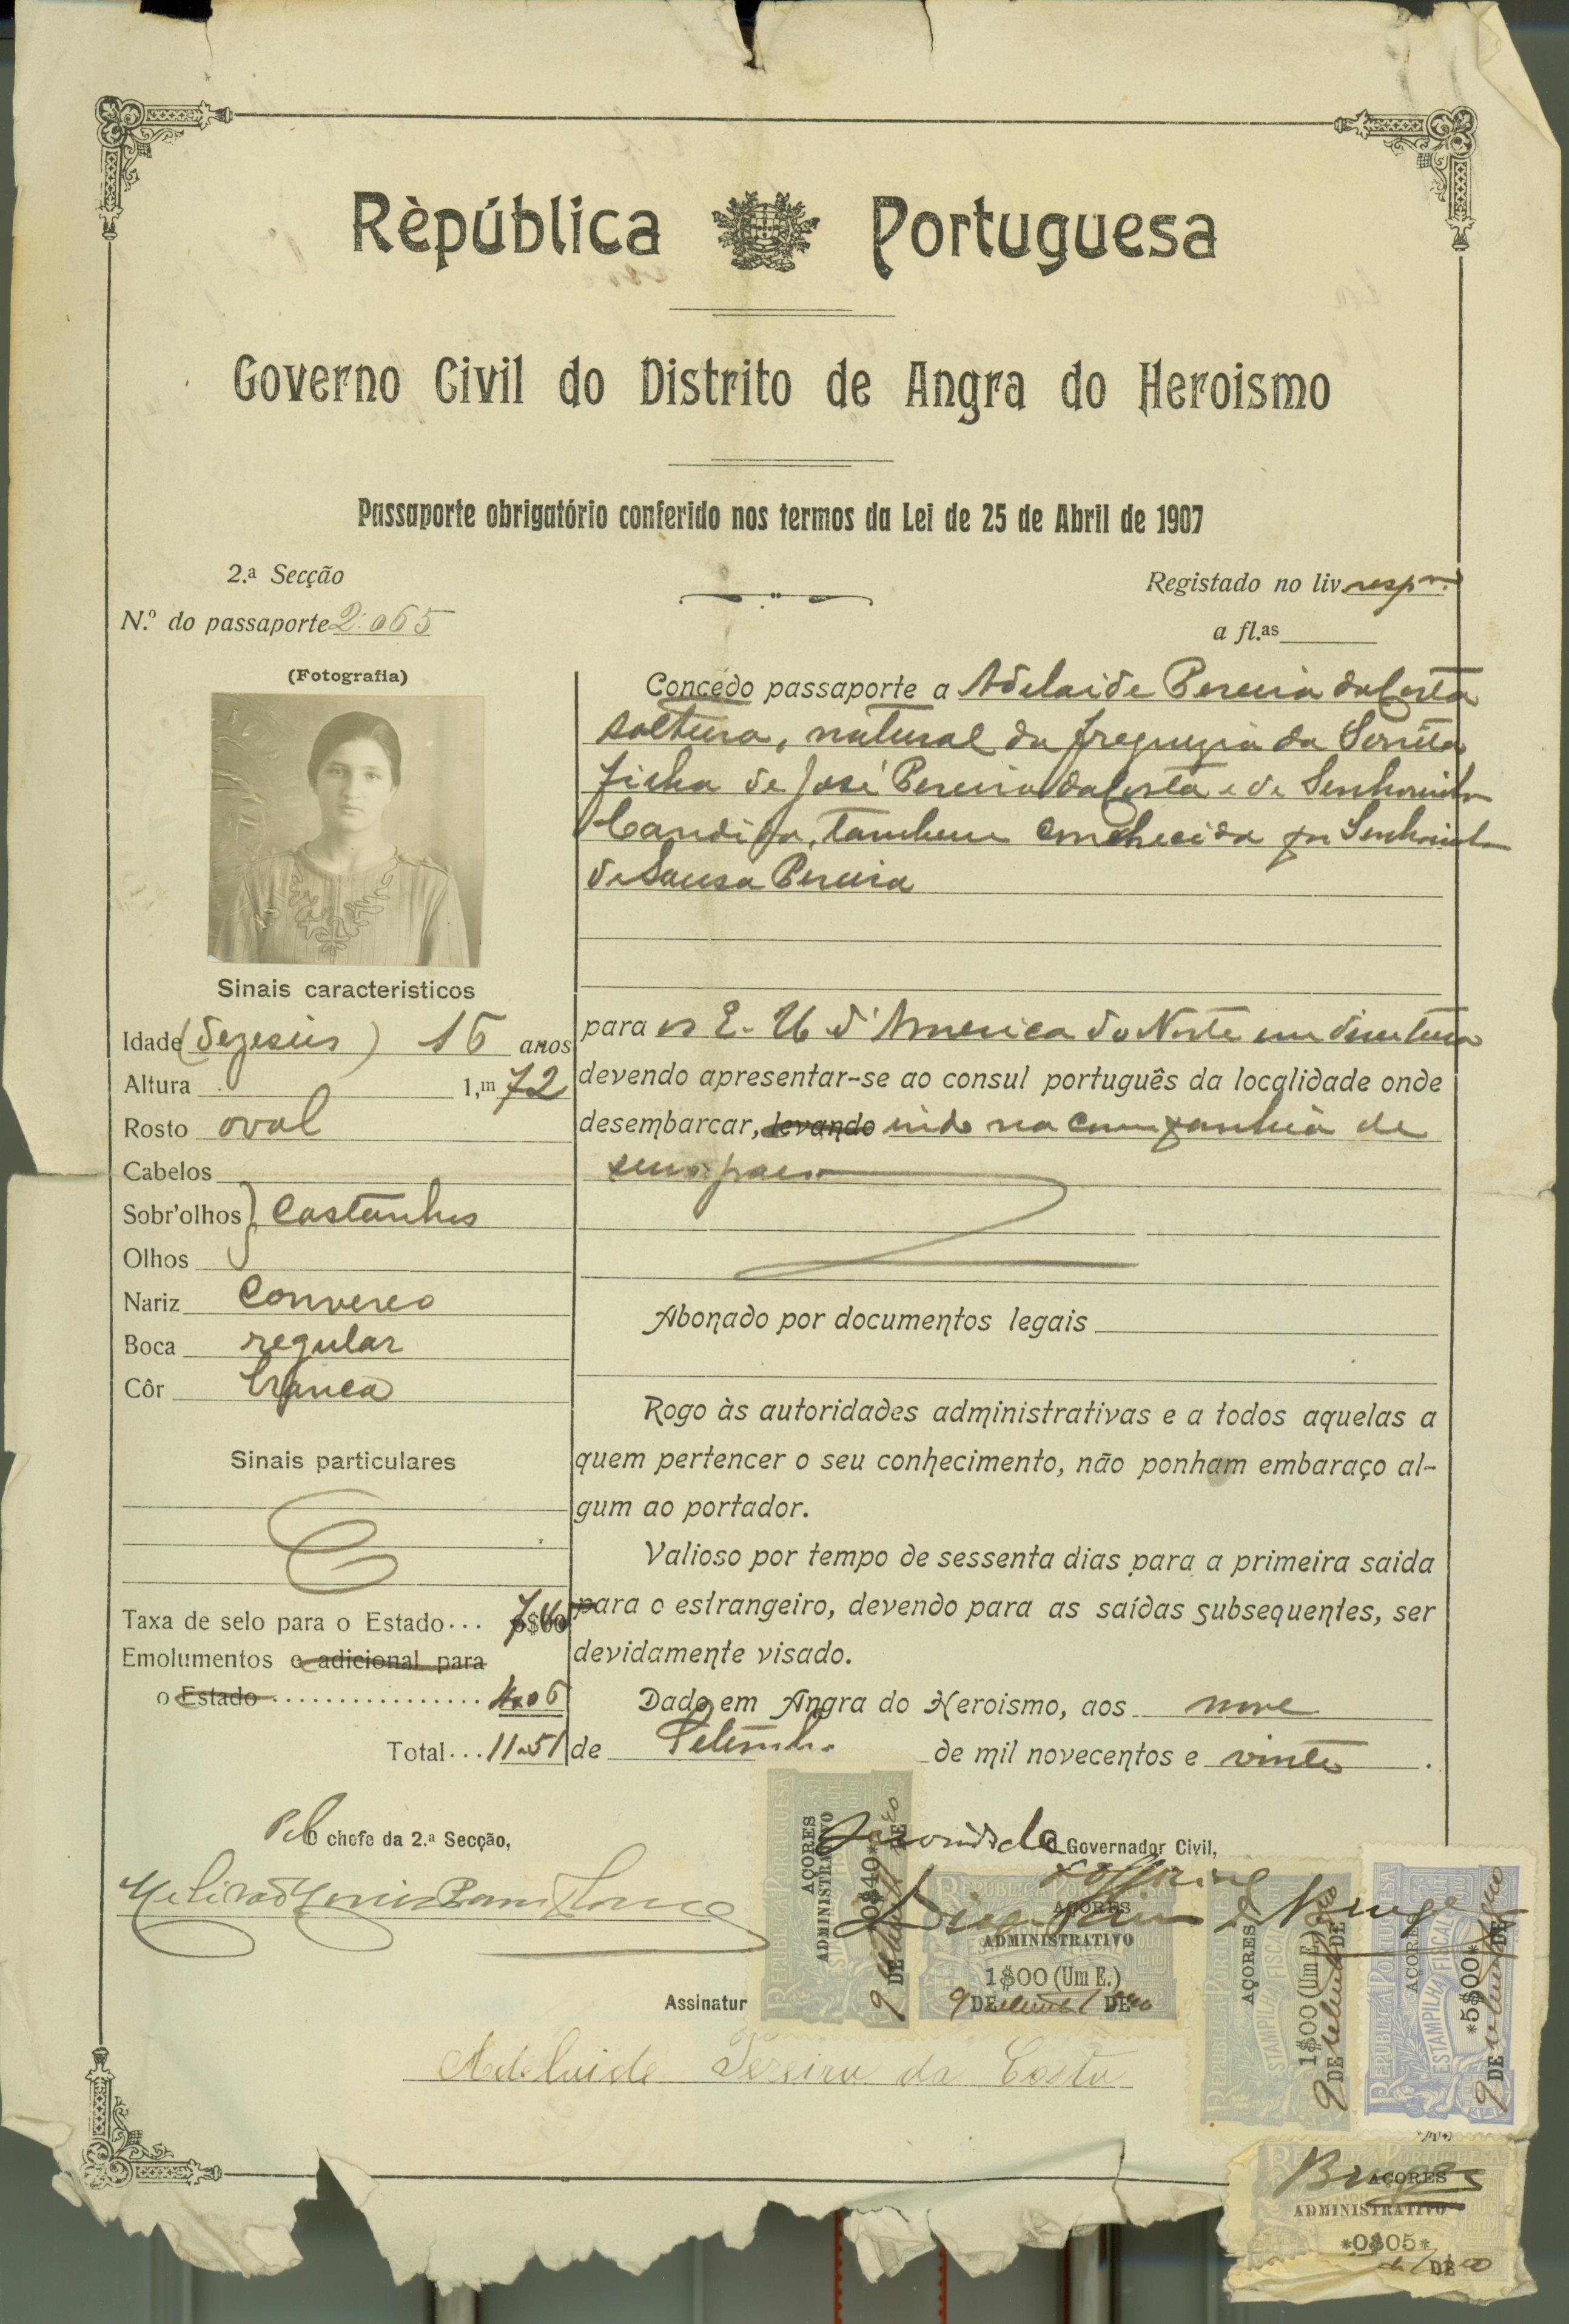 Rèpública Portuguesa
Governo Civil do Distrito de Angra do Heroismo
Passaporte obrigatório conferido nos termos da Lei de 25 de Abril de 1907
2.ª Secção
N.º do passaporte 2:065
Registado no liv. resp.
a fl.as
(Fotografia)
Sinais caracteristicos
Idade (dezeseis) 16 anos
Altura 1,m 72
Rosto oval
Cabelos
Sobr'olhos } Castanhos
Olhos
Nariz Convexo
Boca regular
Côr branca
Sinais particulares
Taxa de selo para o Estado...
Emolumentos e adicional para
o Estado ................ 4.06
Total... 11.51
Concédo passaporte a Adelaide Pereira da Costa
solteira, natural da freguezia da Serreta
filha de José Pereira da Costa e de Senhorinha
Candida, tambem conhecida por Senhorinha
de Sousa Pereira
para os E. U. d'America do Norte em direitura
devendo apresentar-se ao consul português da localidade onde
desembarcar, levando indo na companhia de
seus paes
Abonado por documentos legais
Rogo às autoridades administrativas e a todos aquelas a
quem pertencer o seu conhecimento, não ponham embaraço al-
gum ao portador.
Valioso por tempo de sessenta dias para a primeira saida
para o estrangeiro, devendo para as saídas subsequentes, ser
devidamente visado.
Dado em Angra do Heroismo, aos nove
de Setembro de mil novecentos e vinte.
Pelo O chefe da 2.ª Secção,
O Governador Civil,
AÇORES
ADMINISTRATIVO
*0$40*
9 DE Setembro DE 920
REPUBLICA PORTUGUESA
AÇORES
ADMINISTRATIVO
1$00 (Um E.)
9 DE Setembro DE 920
REPUBLICA PORTUGUESA
ESTAMPILHA FISCAL
AÇORES
1$00 (Um E.)
9 DE Setembro DE 920
REPUBLICA PORTUGUESA
ESTAMPILHA FISCAL
AÇORES
*5$00*
9 DE Setembro DE 920
Assinatur
Adelaide Pereira da Costa
REPUBLICA PORTUGUESA
Bruges
AÇORES
ADMINISTRATIVO
*0$05*
DE